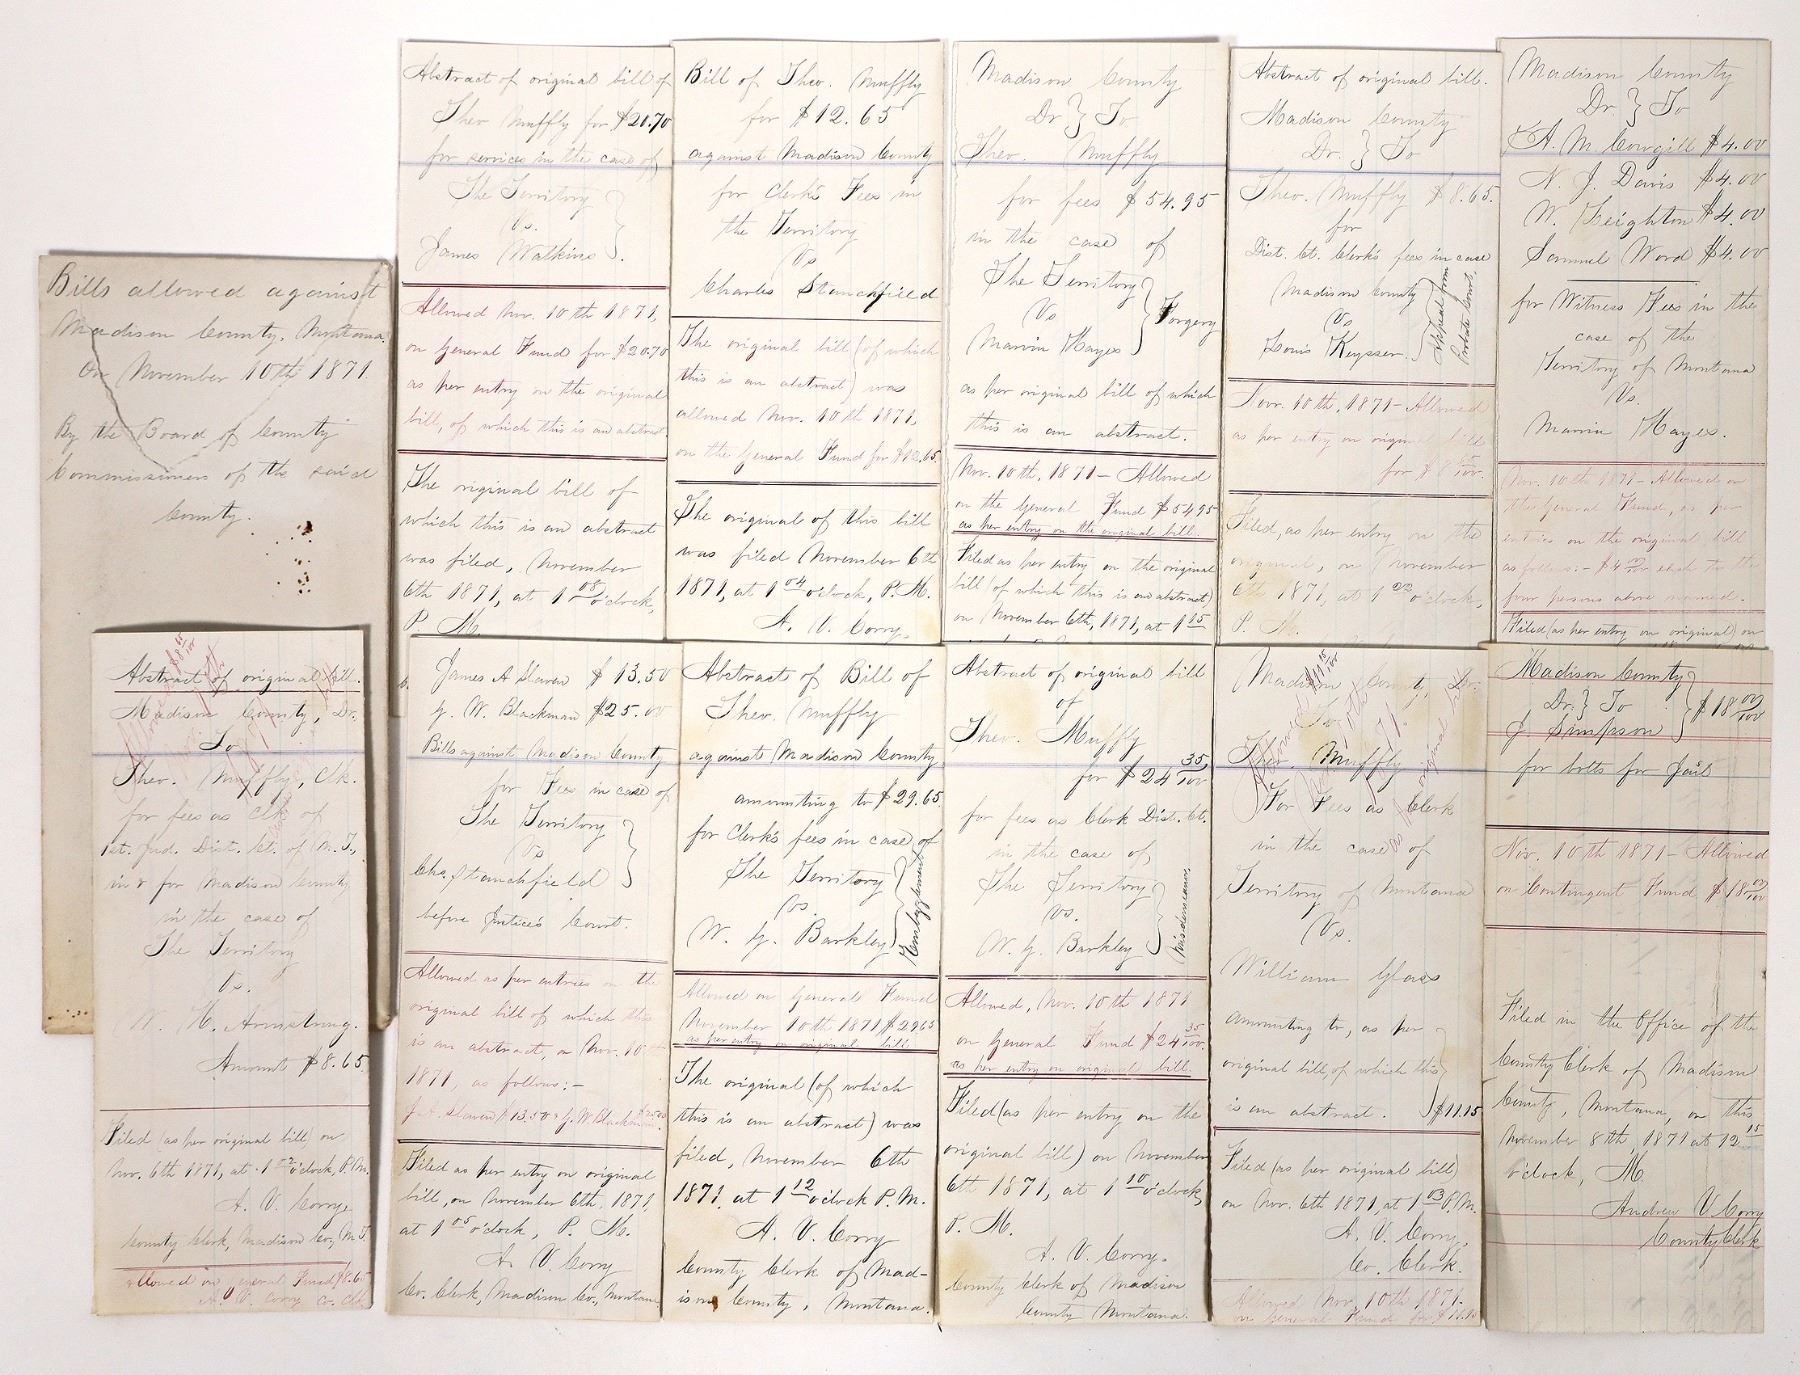 Bills allowed against
Madison County, Montana.
On November 10th 1871.
By the Board of County
Commissioners of the said
County.
Abstract of original bill of
Theo Muffly for $20.70
for services in the case of
The Territory
Vs.
James Watkins.
Allowed Nov. 10th 1871,
on General Fund for $20.70
as per entry on the original
bill, of which this is an abstract.
The original bill of
which this is an abstract
was filed, November
6th 1871, at 1 08 o'clock,
P. M.
Bill of Theo. Muffly
for $12.65
against Madison County
for Clerk's Fees in
the Territory
Vs
Charles Stanchfield
The original bill (of which
this is an abstract) was
allowed Nov. 10th 1871,
on the General Fund for $12.65.
The original of this bill
was filed November 6th
1871, at 1 04 o'clock, P.M.
A. V. Corry,
Madison County
Dr } To
Theo. Muffly
for fees $54.95
in the case of
The Territory
Vs
Marvin Hayes
Forgery
as per original bill of which
this is an abstract.
Nov. 10th, 1871 - Allowed
on the General Fund $54.95
as per entry on the original bill.
Filed as per entry on the original
bill (of which this is an abstract)
on November 6th, 1871, at 1 15
Abstract of original bill.
Madison County
Dr. } To
Theo. Muffly $8.65.
for
Dist. Ct. Clerk's fees in case
Madison County
Vs
Louis Keysser.
Appeal from
Probate Court.
Nov. 10th, 1871 - Allowed
as per entry on original bill
for $8 65/100.
Filed, as per entry on the
original, on November
6th 1871, at 1 o'clock,
P. M.
Madison County
Dr. } To
A. M. Cowgill $4.00
N. J. Davis $4.00
W. Leighton $4.00
Samuel Word $4.00
for Witness Fees in the
case of the
Territory of Montana
Vs.
Marvin Hayes.
Nov. 10th 1871 - Allowed on
the General Fund, as per
entries on the original bill
as follows:- $4 00/100 each to the
four persons above named.
Filed (as per entry on original) on
Abstract of original bill.
Madison County, Dr.
To
Theo. Muffly, Clk.
for fees as Clk of
1st. Jud. Dist. Ct. of M. T.,
in & for Madison County
in the case of
The Territory
Vs.
W. H. Armstrong.
Amount $8.65
Filed (as per original bill) on
Nov. 6th 1871, at 1 02 o'clock, P.M.
A. V. Corry,
County Clerk, Madison Co., M. T.
Allowed on General Fund $8.65
A. V. Corry Co. Clk.
James A Slaven $13.50
G. W. Blackman $25.00
Bills against Madison County
for Fees in case of
The Territory
Vs
Chs. Stanchfield
before Justice's Court.
Allowed as per entries on the
original bill of which this
is an abstract, on Nov. 10th
1871, as follows:-
J. A. Slaven $13.50 & G. W. Blackman $25.00
Filed as per entry on original
bill, on November 6th, 1871,
at 1 05 o'clock, P. M.
A. V. Corry
Co. Clerk, Madison Co., Montana.
Abstract of Bill of
Theo. Muffly
against Madison County
amounting to $29.65
for Clerk's fees in case of
The Territory
Vs.
W. G. Barkley
Embezzlement
Allowed on General Fund
November 10th 1871 $29.65
as per entry on original bill.
The original (of which
this is an abstract) was
filed, November 6th
1871, at 1 12 o'clock P.M.
A. V. Corry
County Clerk of Mad-
ison County, Montana.
Abstract of original bill
of
Theo. Muffly
for $24 35/100
for fees as Clerk Dist. Ct.
in the case of
The Territory
vs.
W. G. Barkley
Misdemeanor
Allowed, Nov. 10th 1871
on General Fund $24 35/100.
as per entry on original bill.
Filed (as per entry on the
original bill) on November
6th 1871, at 1 10 o'clock,
P. M.
A. V. Corry.
County Clerk of Madison
County Montana.
Madison County, Dr.
To
Theo. Muffly
For Fees as Clerk
in the case of
Territory of Montana
Vs.
William Glass
amounting to, as per
original bill, of which this
is an abstract. $11.15
Filed (as per original bill)
on Nov. 6th 1871, at 1 03 P.M.
A. V. Corry,
Co. Clerk.
Allowed Nov. 10th 1871-
on General Fund for $11.15
Madison County
Dr. } To
J Simpson
$18 00/100
for bolts for Jail
Nov. 10th 1871 - Allowed
on Contingent Fund $18 00/100
Filed in the Office of the
County Clerk of Madison
County, Montana, on this
November 8th, 1871 at 12 15
o'clock, M.
Andrew V. Corry
County Clerk